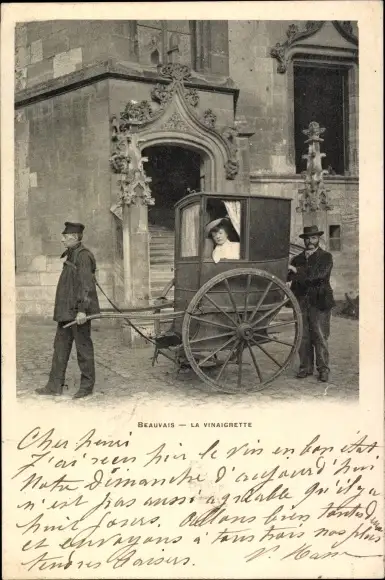 BEAUVAIS — LA VINAIGRETTE
Cher henri
J'ai reçu hier le Vin en bon état
Notre dimanche d'aujourd'hui
n'est pas aussi agréable qu'il y a
huit jours. Allons bien tous deux
et envoyons à tous trois nos plus
tendres baisers.